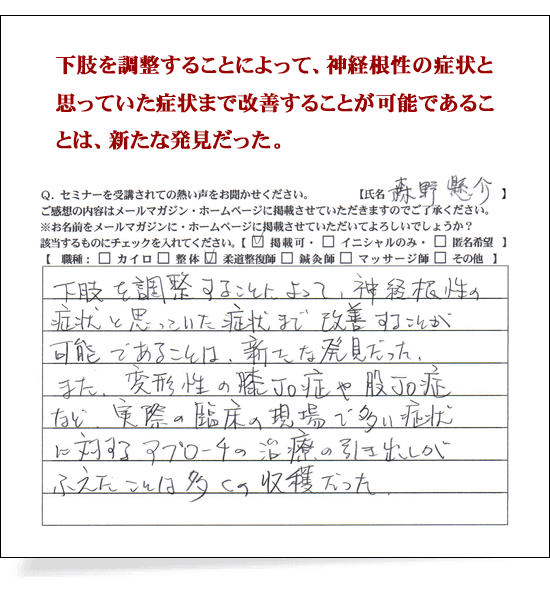 下肢を調整することによって、神経根性の症状と
思っていた症状まで改善することが可能であるこ
とは、新たな発見だった。
Q. セミナーを受講されての熱い声をお聞かせください。 【氏名 森野 懸介 】
ご感想の内容はメールマガジン・ホームページに掲載させていただきますのでご了承ください。
※お名前をメールマガジンに・ホームページに掲載させていただいてよろしいでしょうか？
該当するものにチェックを入れてください。【 ☑ 掲載可・ □ イニシャルのみ・ □ 匿名希望 】
【 職種： □ カイロ □ 整体 ☑ 柔道整復師 □ 鍼灸師 □ マッサージ師 □ その他 】
下肢を調整することによって、神経根性の
症状と思っていた症状まで改善することが
可能であることは、新たな発見だった。
また、変形性の膝JO症や股JO症
など、実際の臨床の現場で多い症状
に対するアプローチの治療の引き出しが
ふえたことは多くの収穫だった。